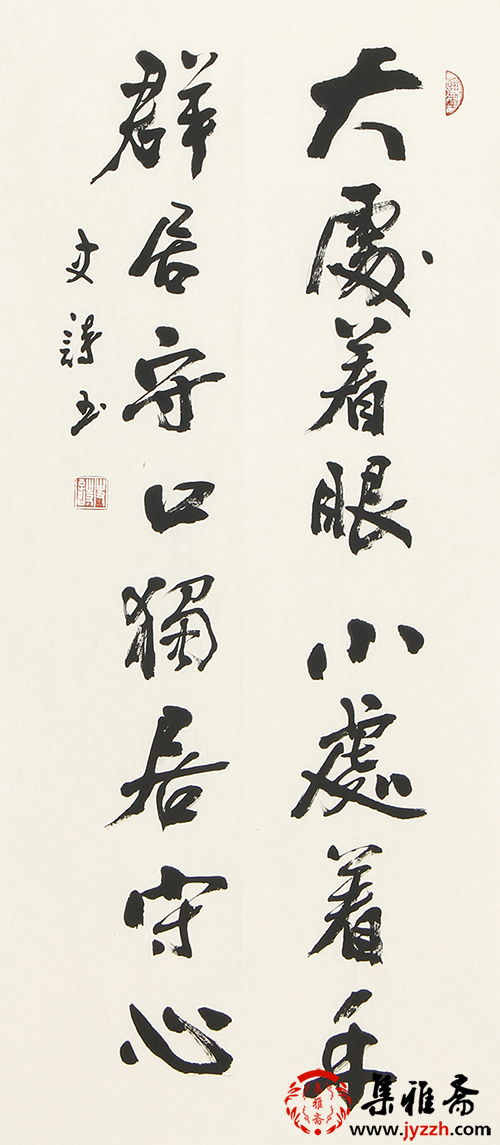 大處着眼小處着手
群居守口獨居守心
集雅斋
www.jyzzh.com